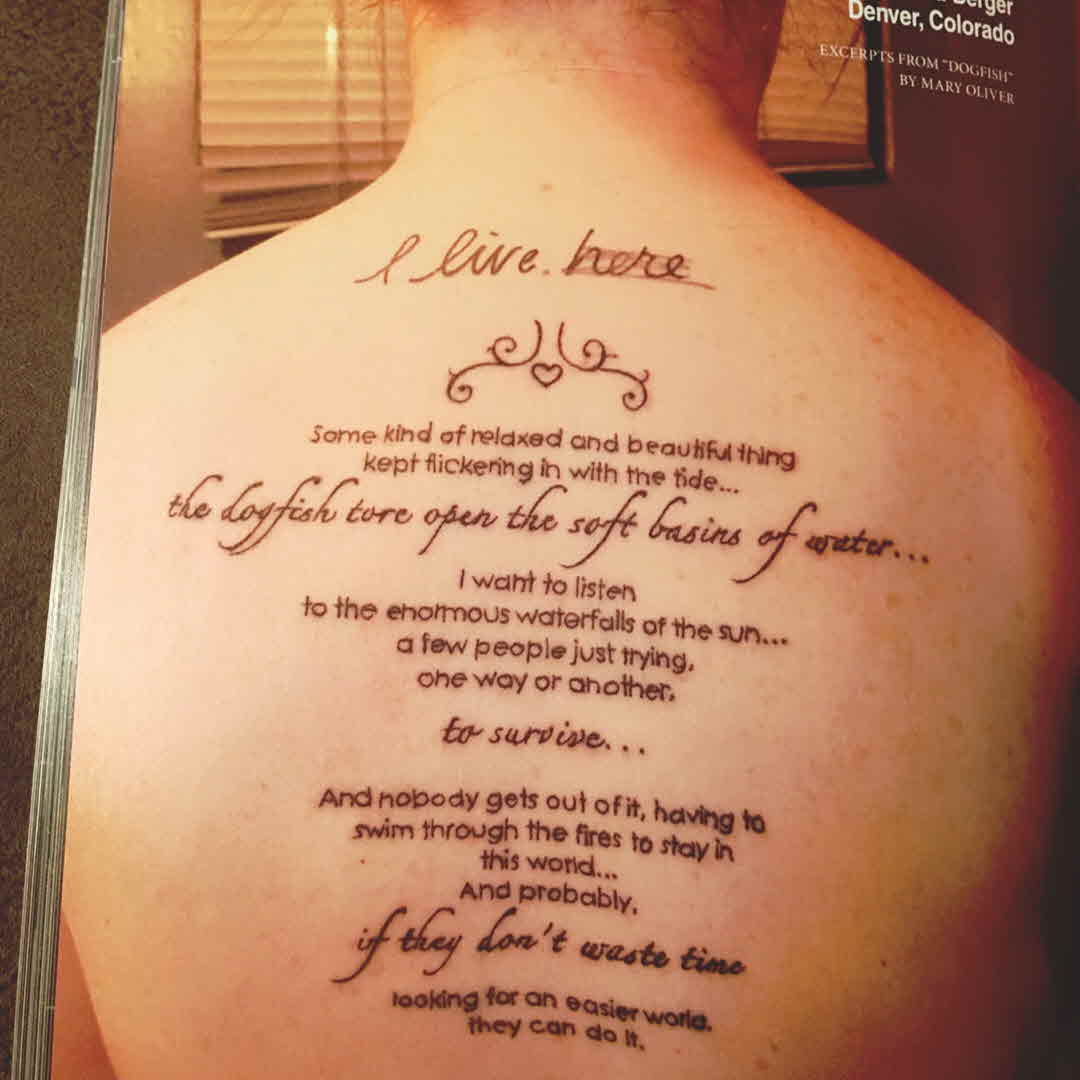 Berger
Denver, Colorado
EXCERPTS FROM "DOGFISH"
BY MARY OLIVER
I live. here
Some kind of relaxed and beautiful thing
kept flickering in with the tide...
the dogfish tore open the soft basins of water...
I want to listen
to the enormous waterfalls of the sun...
a few people just trying,
one way or another,
to survive...
And nobody gets out of it, having to
swim through the fires to stay in
this world...
And probably,
if they don't waste time
looking for an easier world,
they can do it.